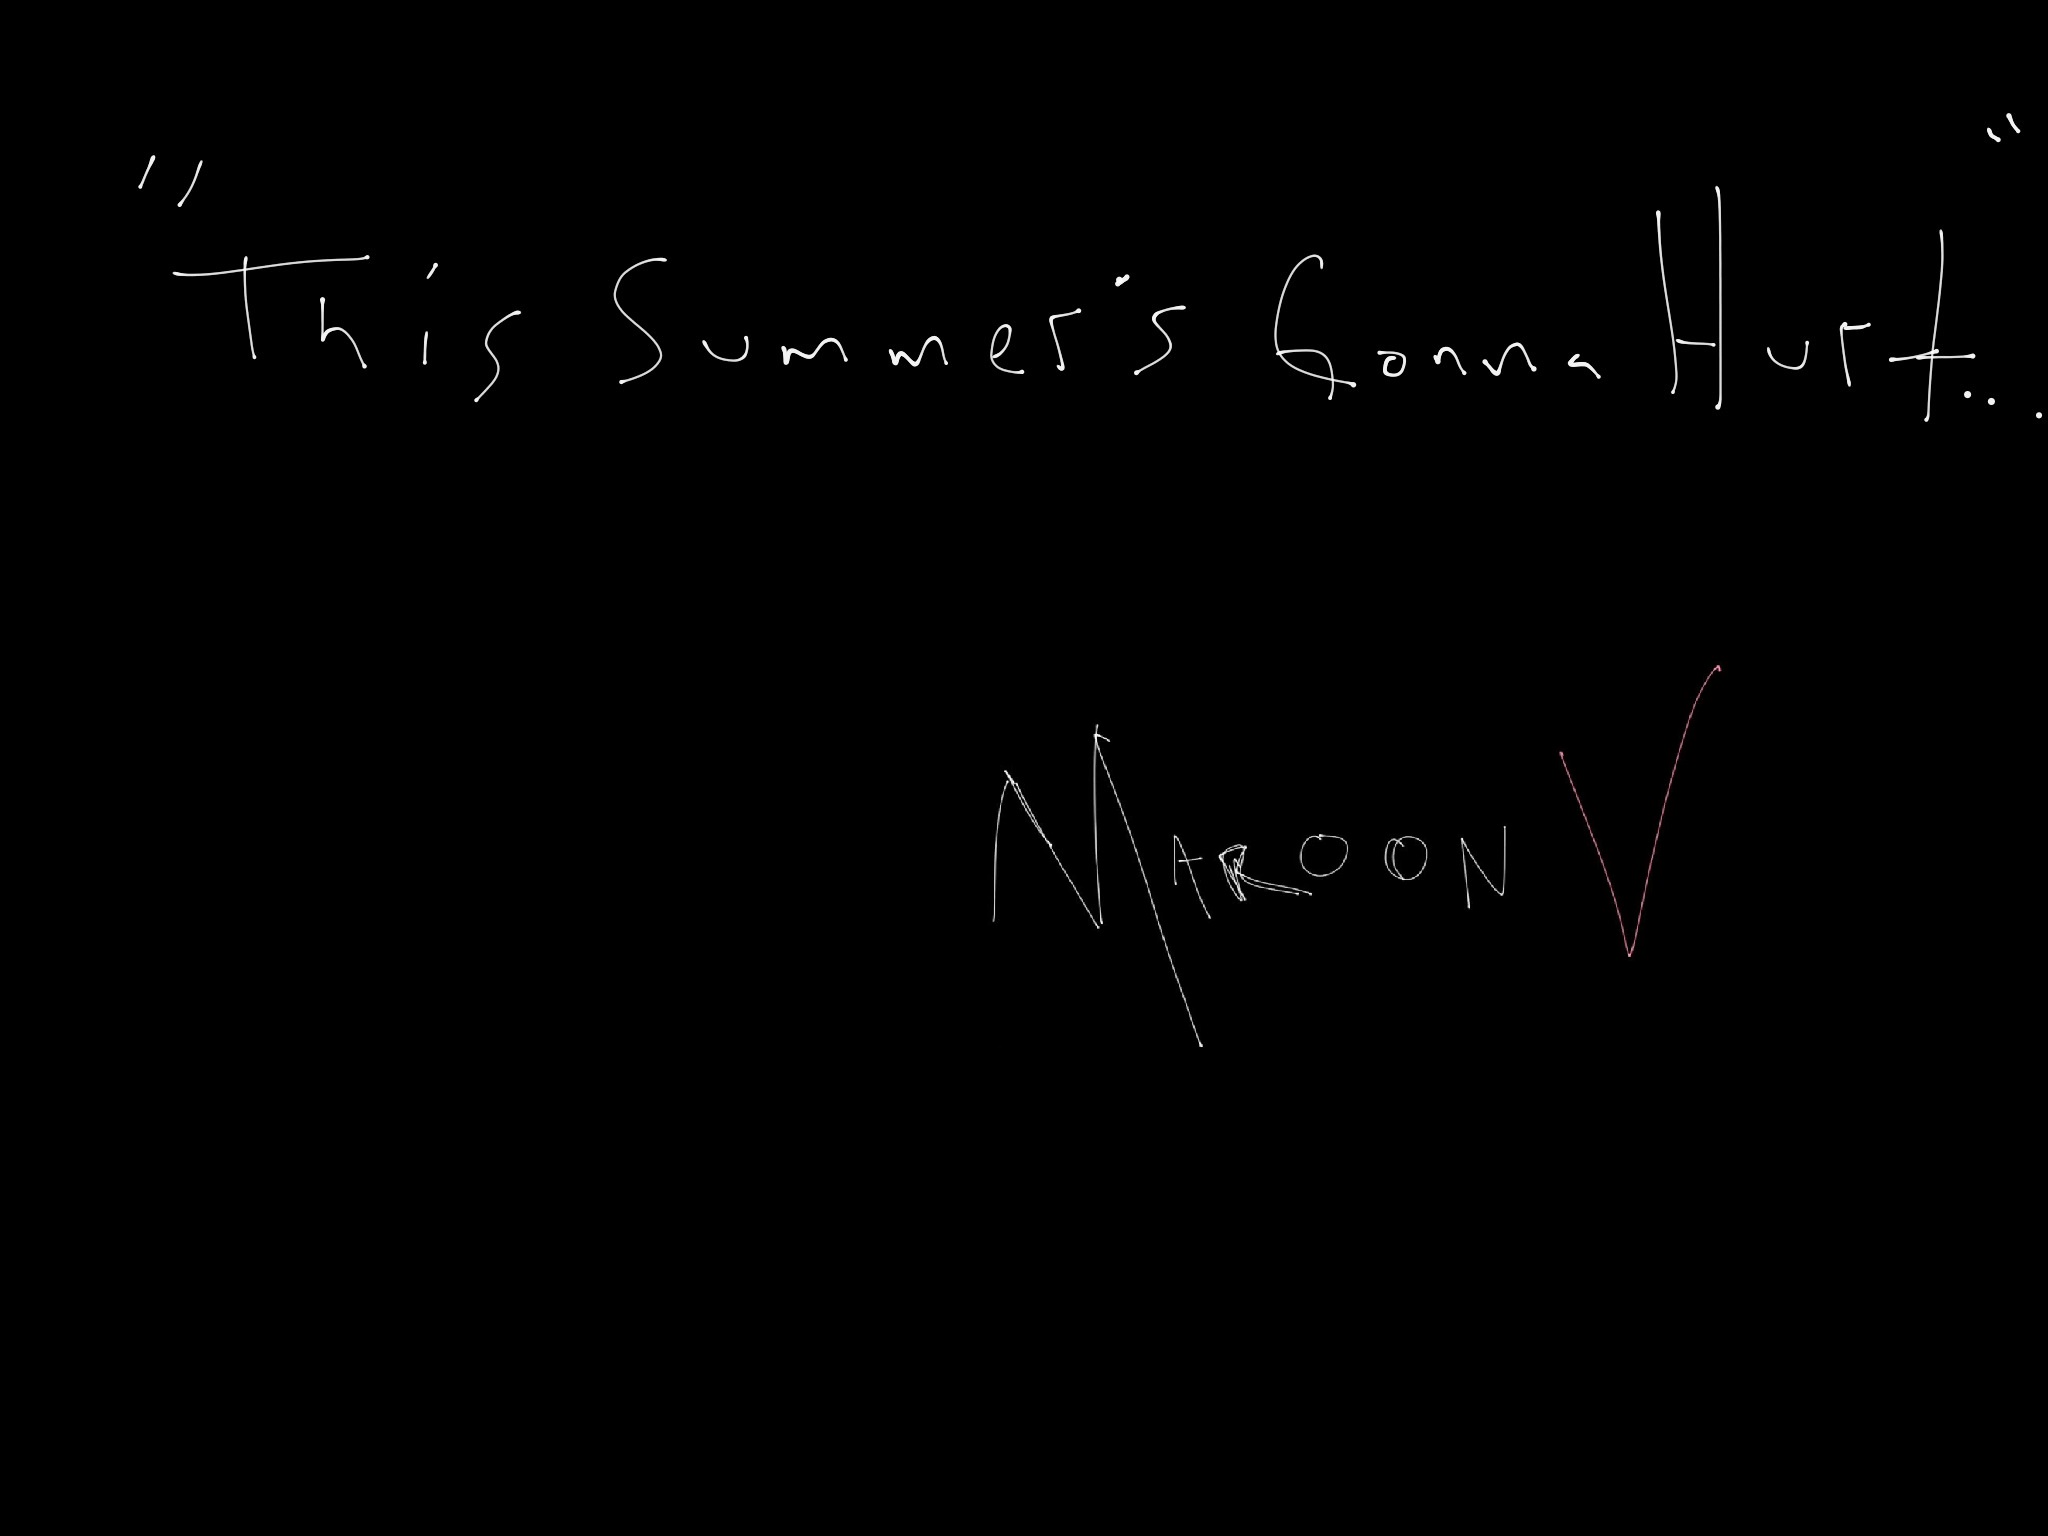 "This Summer's Gonna Hurt..."
MAROON V